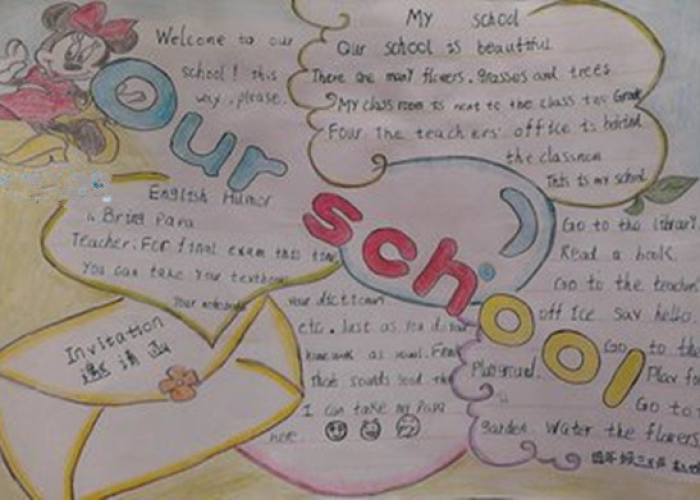 Welcome to our
school! this
way, please.
My school
Our school is beautiful
There are many flowers, grasses and trees
My class room is next to the class two Grade
Four. The teachers' office is behind
the classroom
This is my school
Our
school
English Humor
Bring Papa
Teacher: For final exam this time
You can take your textbook
your notebook
your dictionary
etc. Just as you do your
homework as usual.
That sounds good
I can take my Papa
here.
Invitation
邀请函
Go to the library.
Read a book.
Go to the teachers'
office say hello.
Go to the
Playground. Play
Go to
garden. Water the flowers